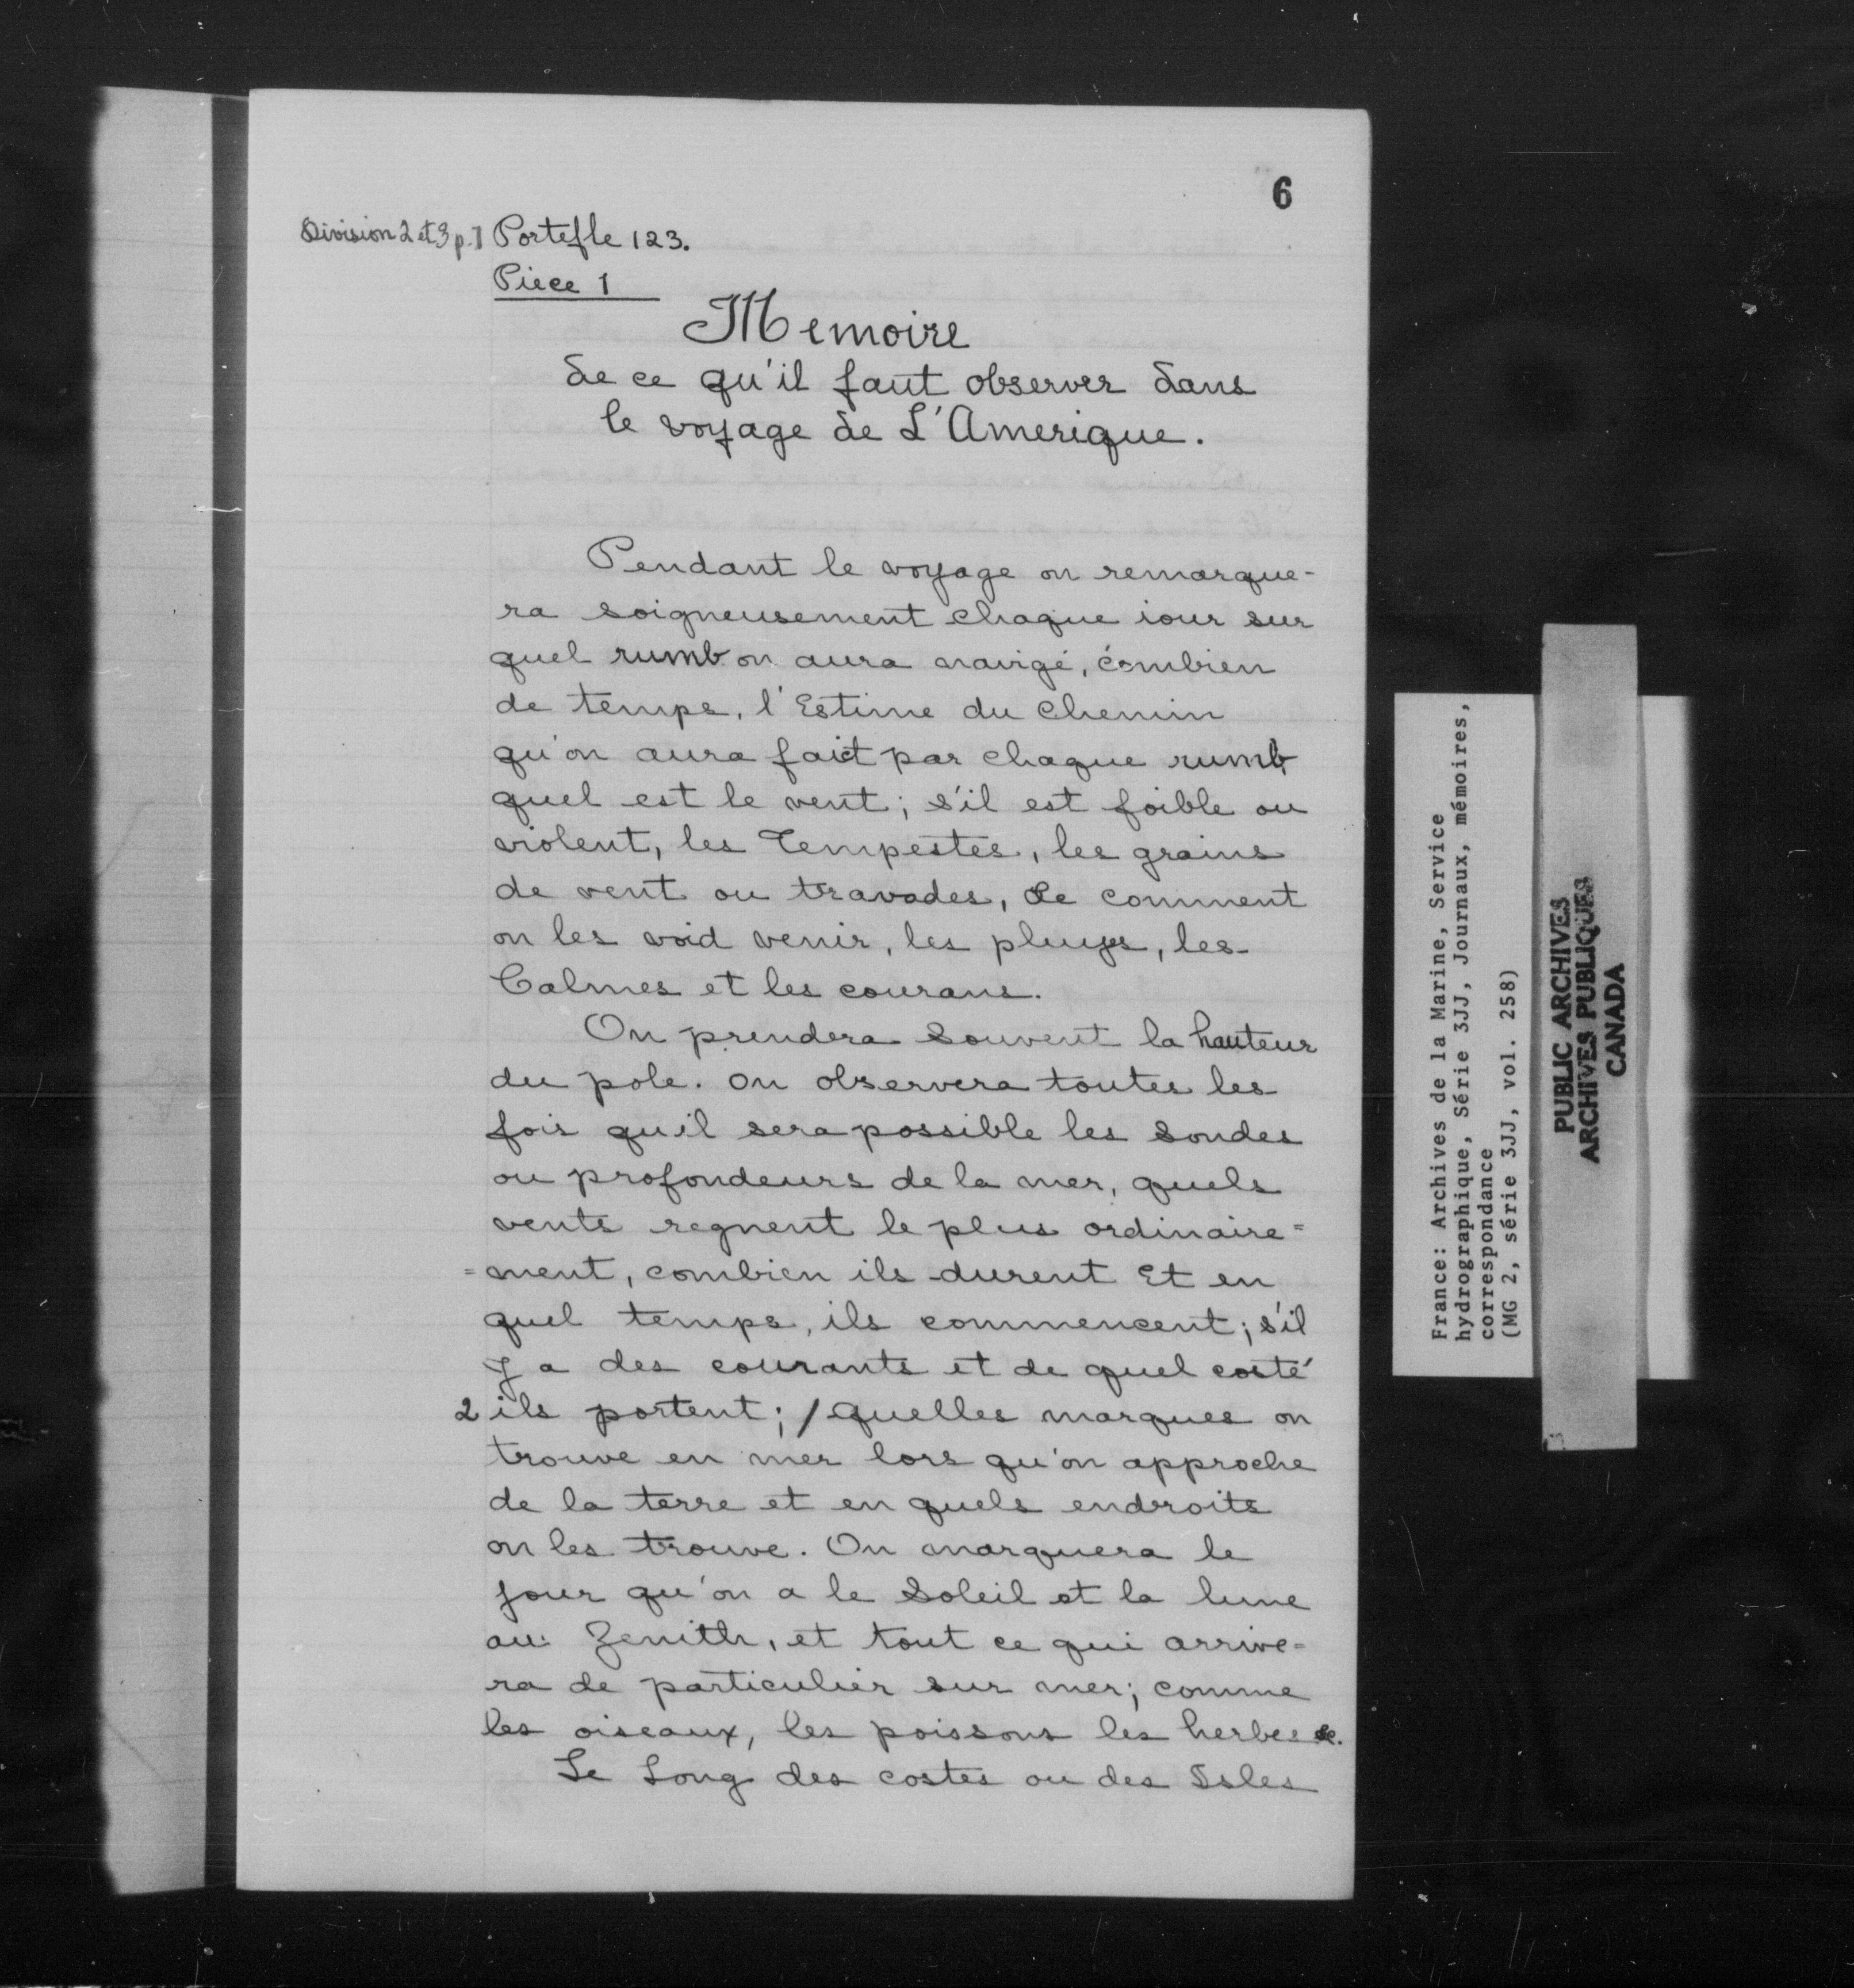 6
Division 2 et 3 p. 1 Portefle 123.
Piece 1
Memoire
de ce qu'il faut observer dans
le voyage de L'Amerique.
Pendant le voyage on remarque-
ra soigneusement chaque iour sur
quel rumb on aura navigé, combien
de temps, l'Estime du chemin
qu'on aura faict par chaque rumb,
quel est le vent; s'il est foible ou
violent, les Tempestes, les grains
de vent ou travades, de comment
on les void venir, les pluyes, les
Calmes et les courans.
On prendera souvent la hauteur
du pole. on observera toutes les
fois quil sera possible les sondes
ou profondeurs de la mer, quels
vents regnent le plus ordinaire=
=ment, combien ils durent Et en
quel temps, ils commencent; s'il
y a des courants et de quel costé
2 ils portent; / quelles marques on
trouve en mer lors qu'on approche
de la terre et en quels endroits
on les trouve. On marquera le
jour qu'on a le soleil et la lune
au Zenith, et tout ce qui arrive=
ra de particulier sur mer; comme
les oiseaux, les poissons les herbes &c.
Le Long des costes ou des Isles
France: Archives de la Marine, Service
hydrographique, Série 3JJ, Journaux, mémoires,
correspondance
(MG 2, série 3JJ, vol. 258)
PUBLIC ARCHIVES
ARCHIVES PUBLIQUES
CANADA